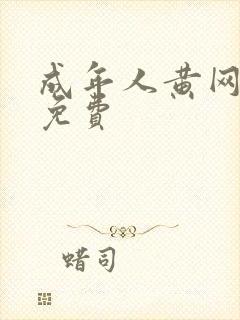 成年人黄网
免费
蜡司